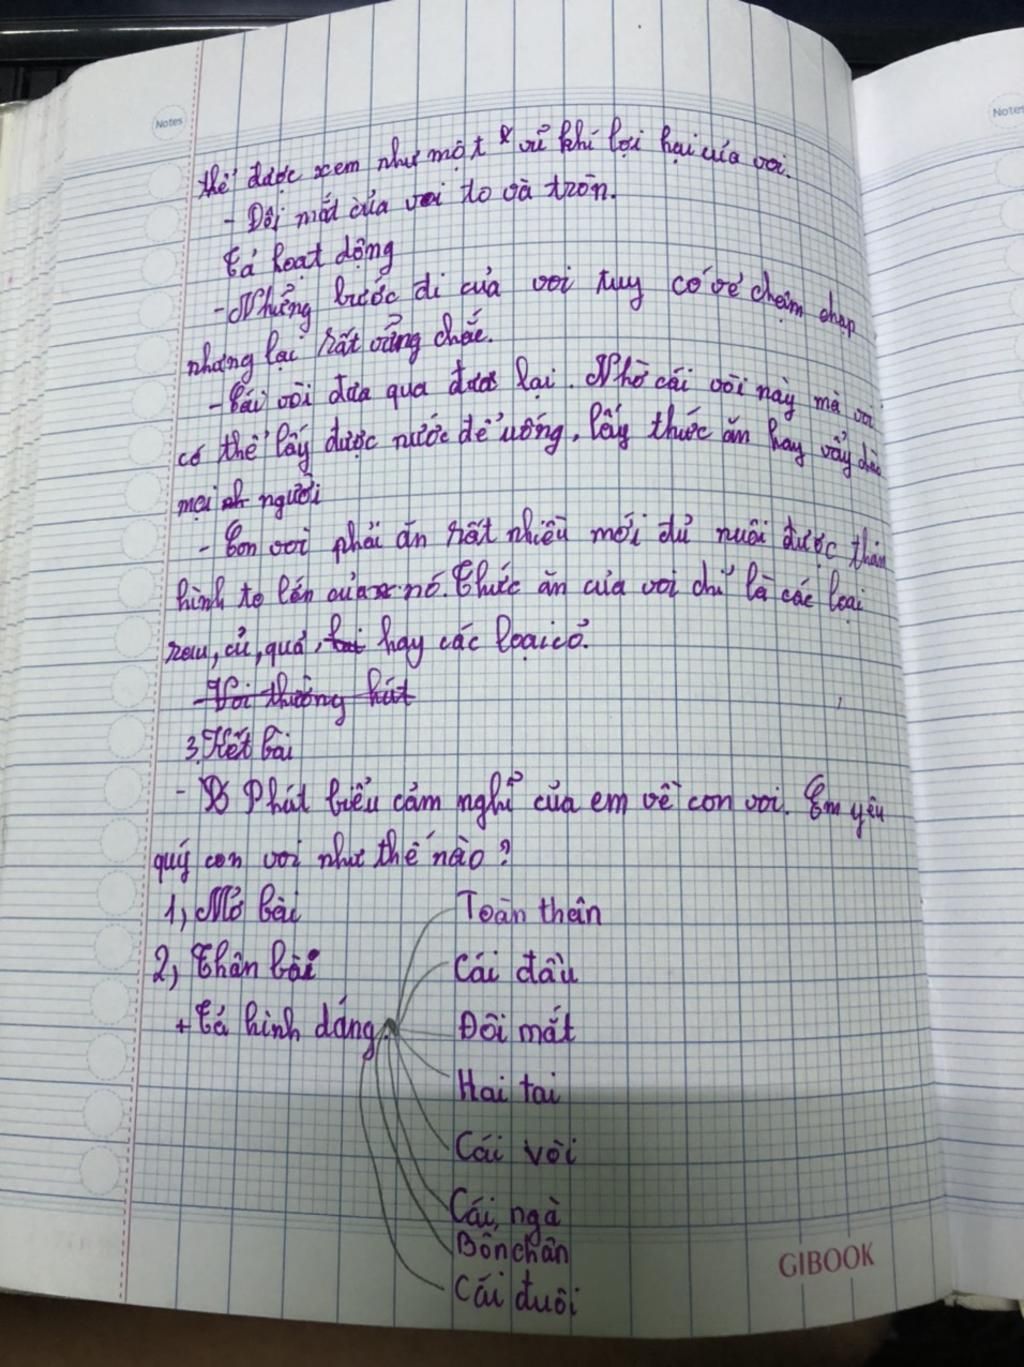 Notes
Notes
thể được xem như một vũ khí lợi hại của voi.
- Đôi mắt của voi to và tròn.
Tả hoạt động
- Những bước đi của voi tuy có vẻ chậm chạp
nhưng lại rất vững chắc.
- Cái vòi đưa qua đưa lại. Nhờ cái vòi này mà voi
có thể lấy được nước để uống, lấy thức ăn hay vẫy chào
mọi người
- Con voi phải ăn rất nhiều mới đủ nuôi được thân
hình to lớn của nó. Thức ăn của voi chỉ là các loại
rau, củ, quả, hay các loại cỏ.
- Voi thường hút
3. Kết bài
- Phát biểu cảm nghĩ của em về con voi. Em yêu
quý con voi như thế nào?
1, Mở bài
2, Thân bài
+ Tả hình dáng
Toàn thân
Cái đầu
Đôi mắt
Hai tai
Cái vòi
Cái, ngà
Bốn chân
Cái đuôi
GIBOOK